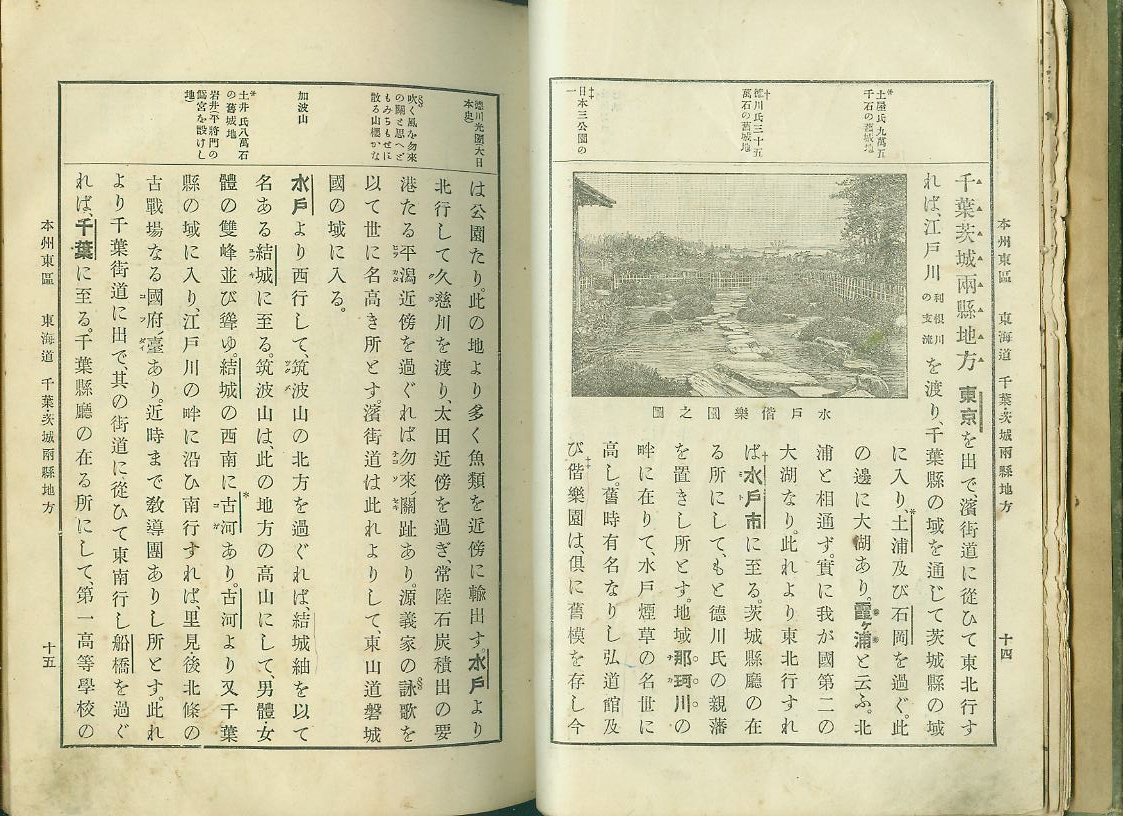 本州東區　東海道　千葉・茨城兩縣地方
十四
土屋氏九萬五
千石の舊城地
德川氏三十五
萬石の舊城地
日本三公園の
一
千葉茨城兩縣地方　東京を出で、濱街道に從ひて東北行す
れば、江戸川 利根川の支流 を渡り、千葉縣の域を通じて茨城縣の域
に入り、土浦及び石岡を過ぐ。此
の邊に大湖あり。霞ヶ浦と云ふ。北
浦と相通ず。實に我が國第二の
大湖なり。此れより東北行すれ
ば水戸市に至る。茨城縣廳の在
る所にして、もと德川氏の親藩
を置きし所とす。地域那珂川の
畔に在りて、水戸煙草の名世に
高し。舊時有名なりし弘道館及
び偕樂園は、倶に舊模を存し今
水戸偕樂園之圖
德川光圀大日
本史
吹く風を勿來
の關と思へど
もみちもせに
散る山櫻かな
加波山
土井氏八萬石
の舊城地
岩井（平將門の
僞宮を設けし
地）
は公園たり。此の地より多く魚類を近傍に輸出す。水戸より
北行して久慈川を渡り、太田近傍を過ぎ、常陸石炭積出の要
港たる平潟近傍を過ぐれば勿來ノ關趾あり。源義家の詠歌を
以て世に名高き所とす。濱街道は此れよりして、東山道磐城
國の域に入る。
水戸より西行して、筑波山の北方を過ぐれば、結城紬を以て
名ある結城に至る。筑波山は、此の地方の高山にして、男體・女
體の雙峰並び聳ゆ。結城の西南に古河あり。古河より又千葉
縣の域に入り、江戸川の畔に沿ひ南行すれば、里見後北條の
古戰場なる國府ノ臺あり。近時まで敎導團ありし所とす。此れ
より千葉街道に出で、其の街道に從ひて東南行し船橋を過ぐ
れば、千葉に至る。千葉縣廳の在る所にして、第一高等學校の
本州東區　東海道　千葉・茨城兩縣地方
十五